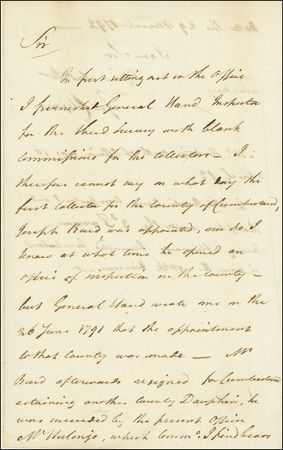 Sir
In first setting out in the Office
I furnished General Hand Inspector
for the third survey with blank
commissions for the collectors — I
therefore cannot say on what day the
first collector for the County of Cumberland,
Joseph Baird, was appointed, nor do I
know at what time he opened an
office of inspection in the County —
but General Hand wrote me on the
26 June 1791 that the appointment
to that County was made — Mr
Baird afterwards resigned for Cumberland
retaining another County Dauphin, he
was succeeded by the present Officer
Mr Hulings, which Comm., I find bears